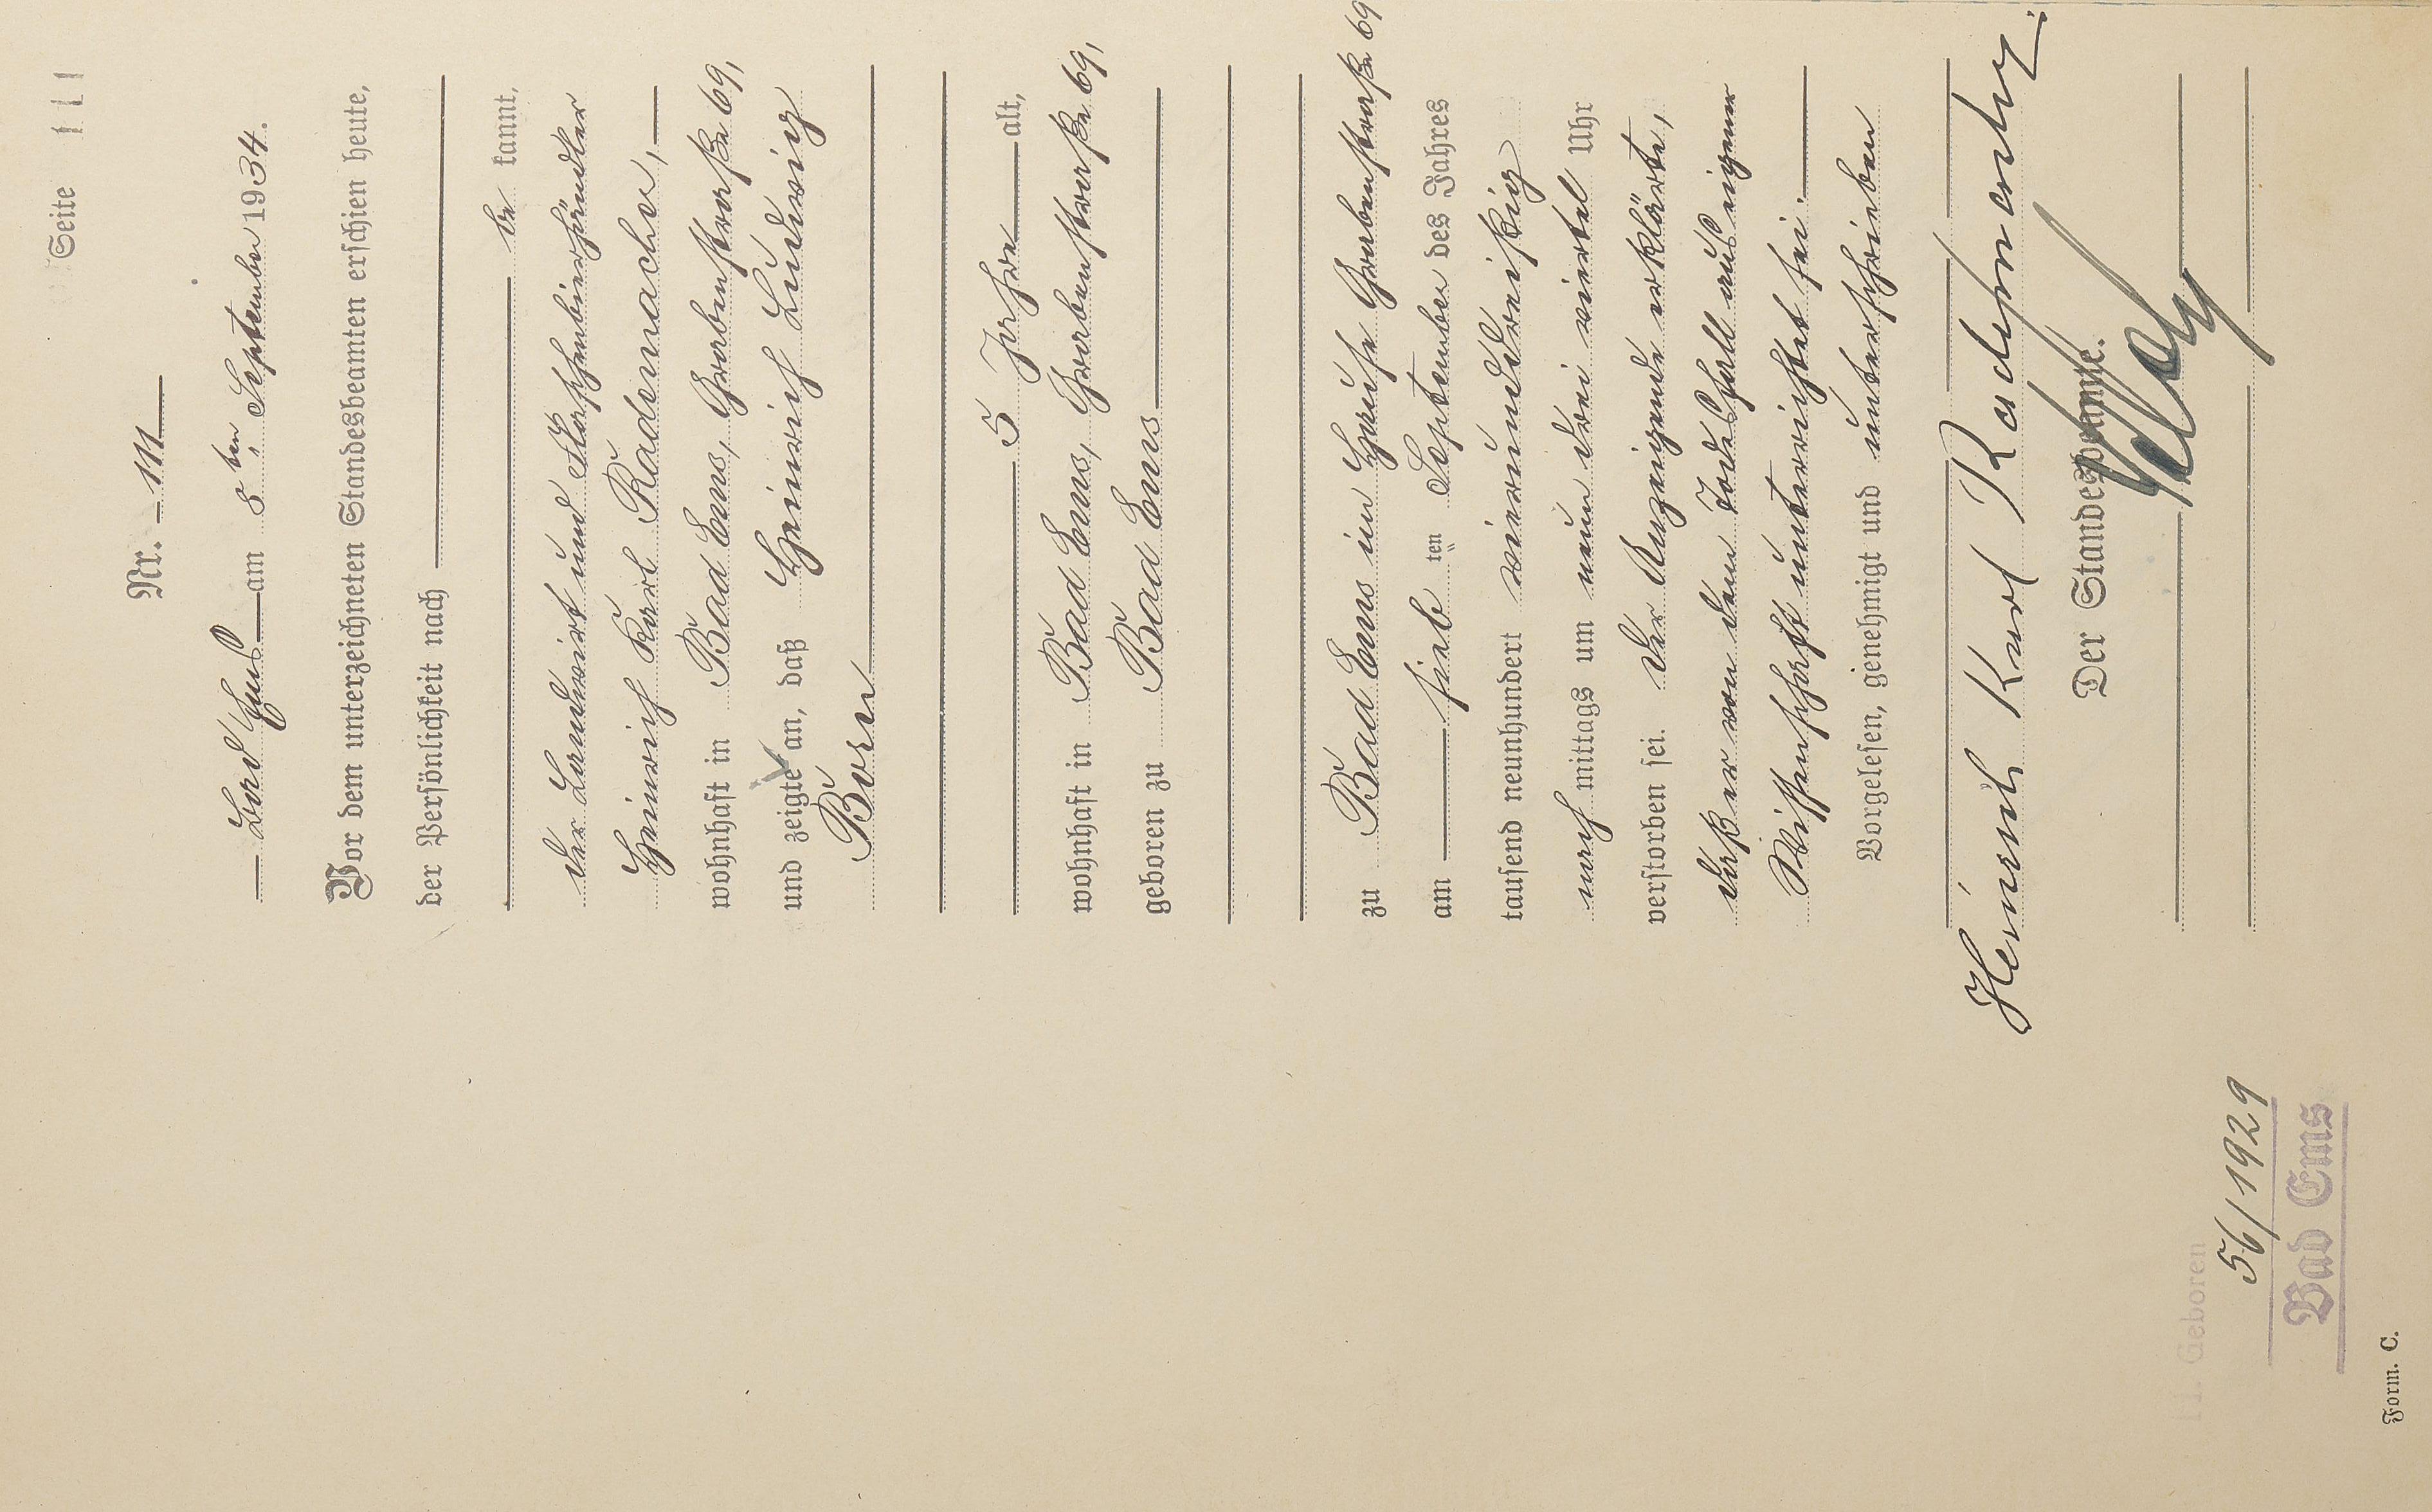 Seite 111
Nr. 111
Bad Ems am 8ten September 1934.
Vor dem unterzeichneten Standesbeamten erschien heute,
der Persönlichkeit nach
be kannt,
der Landwirt und Flaschenbierhändler
Heinrich Karl Rademacher,
wohnhaft in Bad Ems, Grabenstraße 69,
und zeigte an, daß Heinrich Ludwig
Born
5 Jahre alt,
wohnhaft in Bad Ems, Grabenstraße 69,
geboren zu Bad Ems
zu Bad Ems im Hause Grabenstraße 69
am sieb ten September des Jahres
tausend neunhundert vierunddreißig
nach mittags um neun drei viertel Uhr
verstorben sei. Der Anzeigende erklärte,
daß er von dem Todesfall aus eigener
Wissenschaft unterrichtet sei.
Vorgelesen, genehmigt und unterschrieben
Heinrich Karl Rademacher
Der Standesbeamte.
Geboren
56/1929
Bad Ems
Form. C.